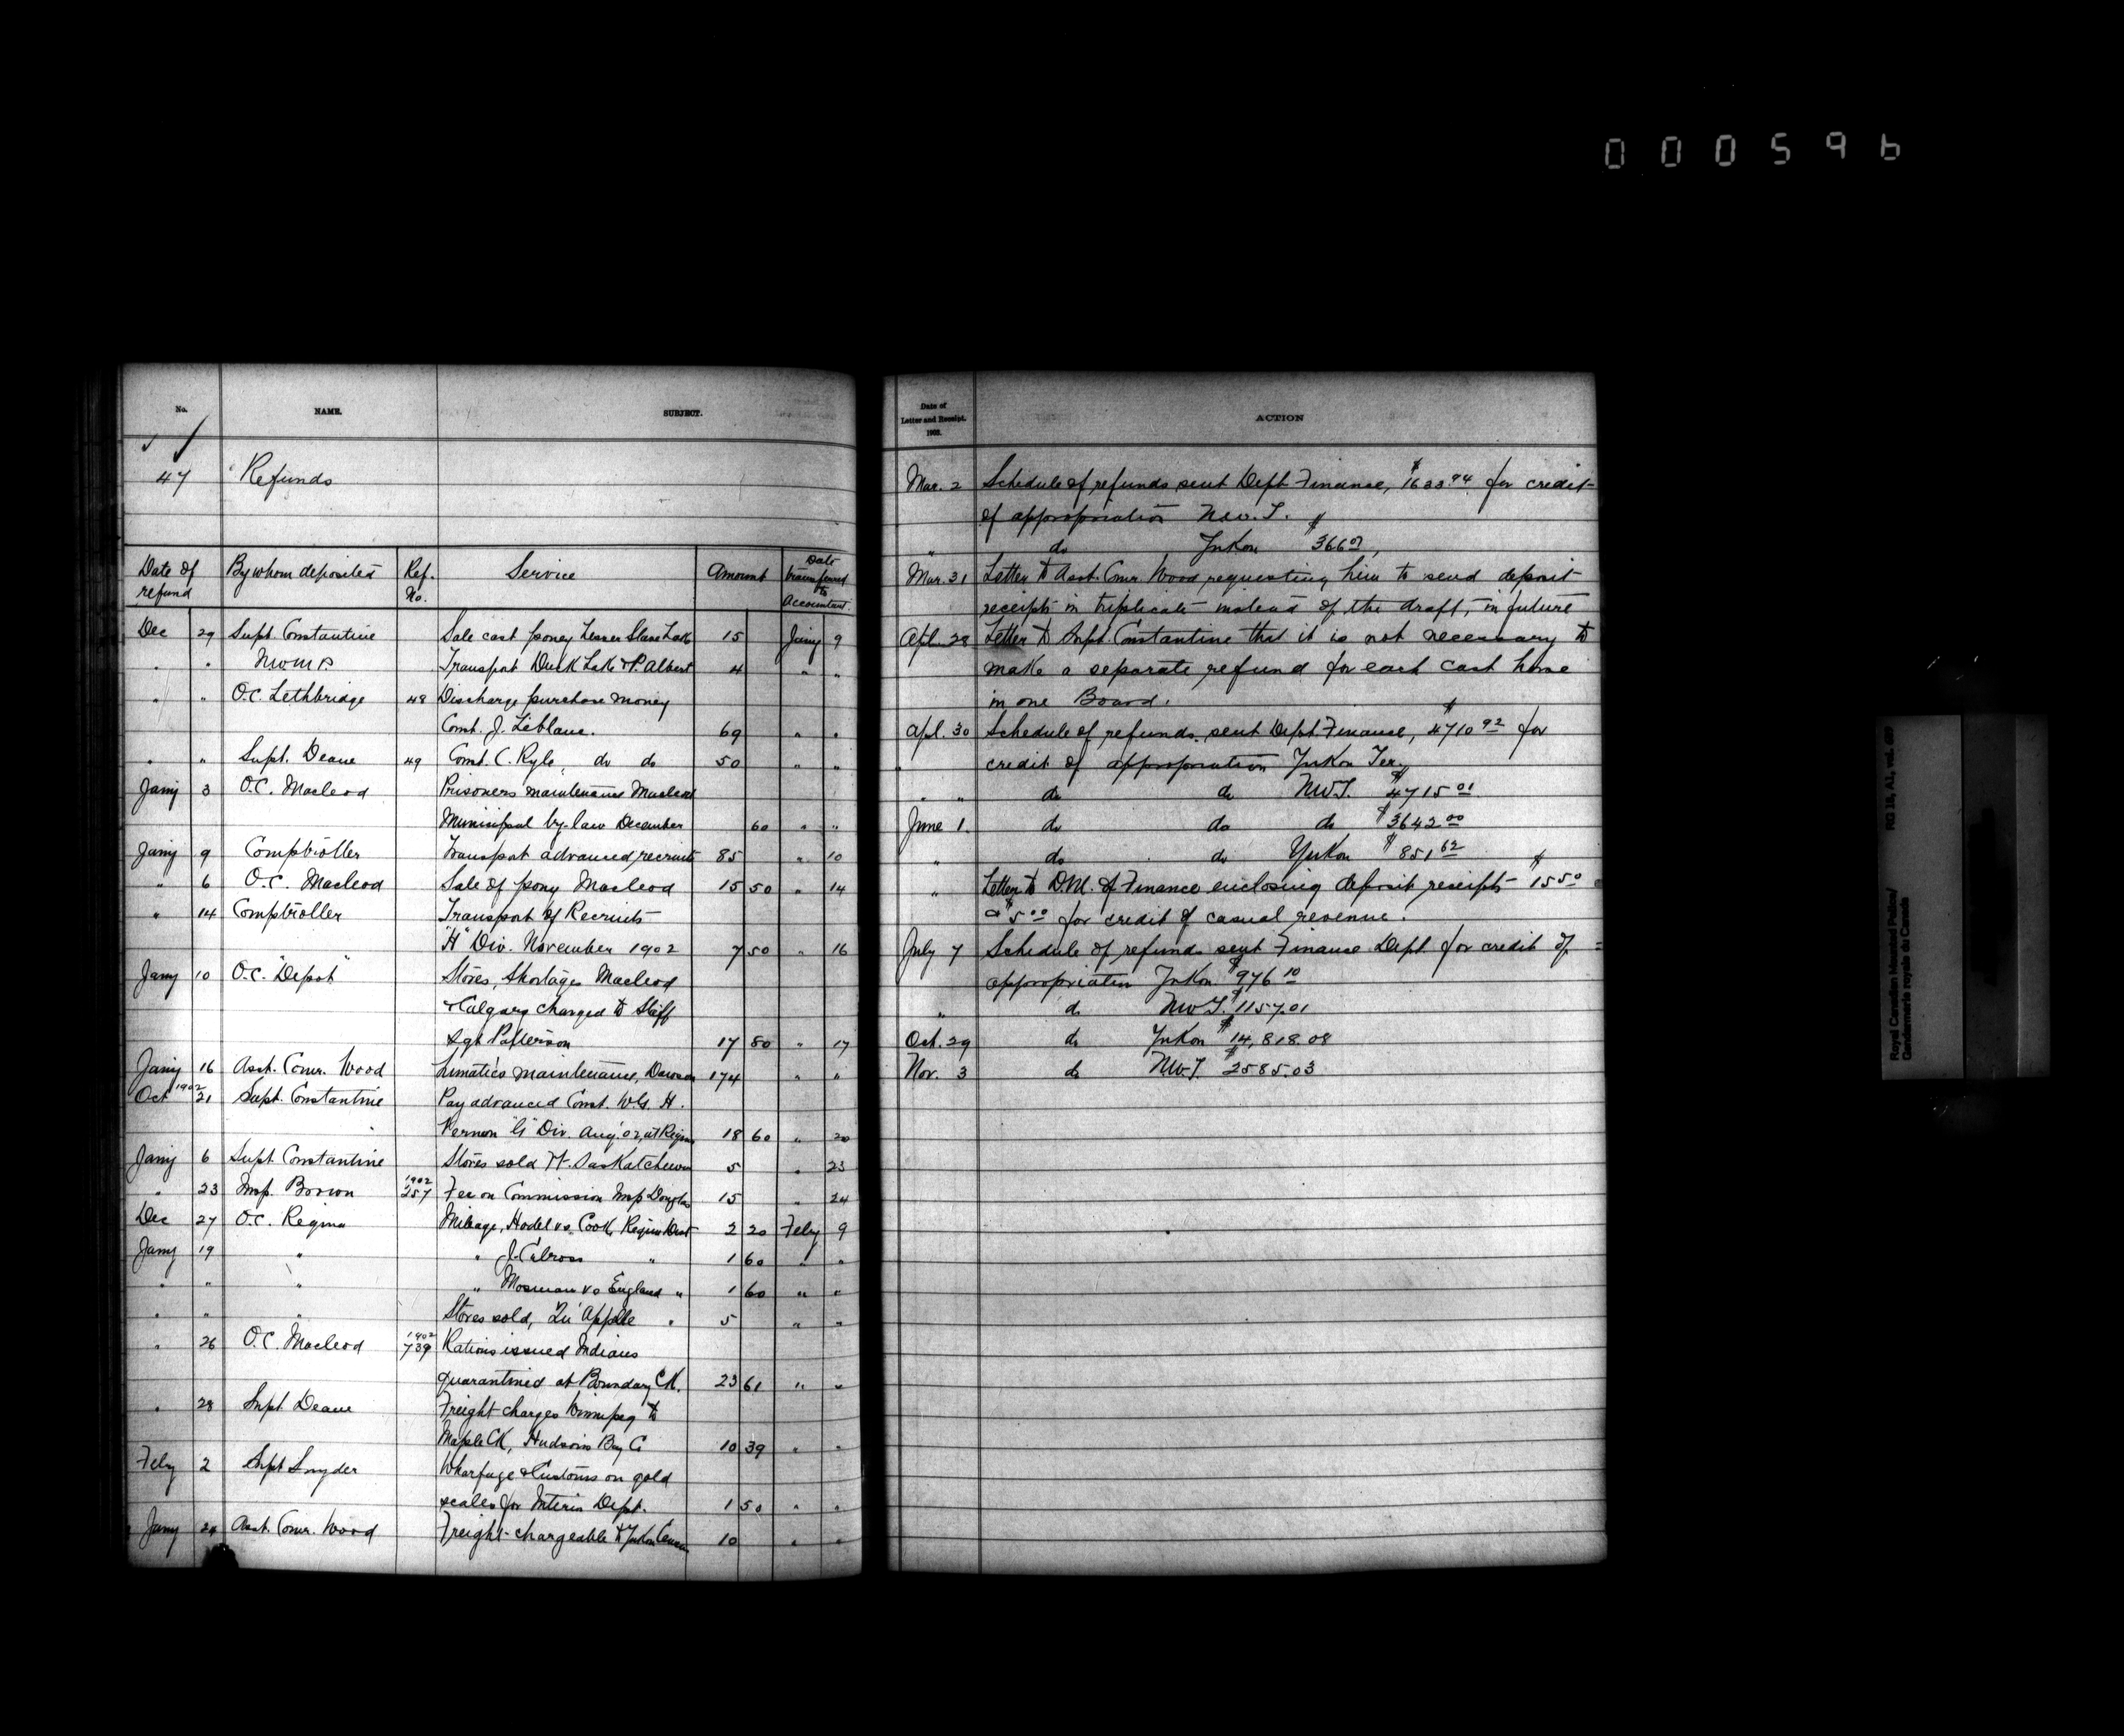 000596
No. NAME. SUBJECT.
47 Refunds
Date of refund By whom deposited Ref. No. Service Amount Date transferred to Accountant.
Dec 29 Supt. Constantine Sale cast poney Lesser Slave Lake 15 Jany 9
" " NWMP. Transport Duck Lake & P. Albert 4 " "
" " O.C. Lethbridge 48 Discharge purchase money
Const. J. Leblanc. 69 " "
" " Supt. Deane 49 Const. C. Ryle, do do 50 " "
Jany 3 O.C. Macleod Prisoners maintenance Macleod
Municipal by-law December 60 " "
Jany 9 Comptroller Transport advanced, recruits 85 " 10
" 6 O.C. Macleod Sale of pony Macleod 15 50 " 14
" 14 Comptroller Transport of Recruits
"H" Div. November 1902 7 50 " 16
Jany 10 O.C. "Depot" Stores, Shortages Macleod
& Calgary charged to Staff
Sgt Patterson 17 80 " 17
Jany 16 Asst. Comr. Wood Lunatics maintenance, Dawson 174 " "
Oct 1902 21 Supt. Constantine Pay advanced Const. W.G. H.
Vernon "G" Div. Aug. 02, at Regina 18 60 " 20
Jany 6 Supt Constantine Stores sold Ft. Saskatchewan 5 " 23
" 23 Insp. Brown 1902 257 Fee on Commission Insp Douglas 15 " 24
Dec 27 O.C. Regina Mileage, Hodel vs. Cook, Regina Dist 2 20 Feby 9
Jany 19 " " J. Cilross " 1 60 " "
" " " " Mosman vs England " 1 60 " "
" " " Stores sold, Qu'Appelle " 5 " "
" 26 O.C. Macleod 1902 739 Rations issued Indians
quarantined at Boundary CK. 23 61 " "
" 28 Supt Deane Freight charges Winnipeg to
Maple CK, Hudson's Bay Co 10 39 " "
Feby 2 Supt Snyder Wharfage & Customs on gold
scales for Interior Dept. 1 50 " "
Jany 24 Asst. Comr. Wood Freight chargeable to Yukon Census 10 " "
Date of Letter and Receipt. 1903. ACTION
Mar. 2 Schedule of refunds sent Dept Finance, $1633.94 for credit
of appropriation N.W.T.
" do Yukon $366.07,
Mar. 31 Letter to Asst. Comr. Wood requesting him to send deposit
receipts in triplicate instead of the draft, in future
Apl. 28 Letter to Supt. Constantine that it is not necessary to
make a separate refund for each cast horse
in one Board.
Apl. 30 Schedule of refunds sent Dept. Finance, $4710.92 for
" credit of appropriation Yukon Ter.
" " do do NWT. $4715.01
June 1. do do do $3642.00
" do do Yukon $851.62
" Letter to D.M. of Finance enclosing deposit receipts $15.50
& $5.00 for credit of casual revenue.
July 7 Schedule of refunds sent Finance Dept. for credit of
appropriation Yukon $976.10
" do NWT. $1157.01
Oct. 29 do Yukon $14,818.08
Nov. 3 do NWT. $2585.03
Royal Canadian Mounted Police/
Gendarmerie royale du Canada
RG 18, A1, vol.